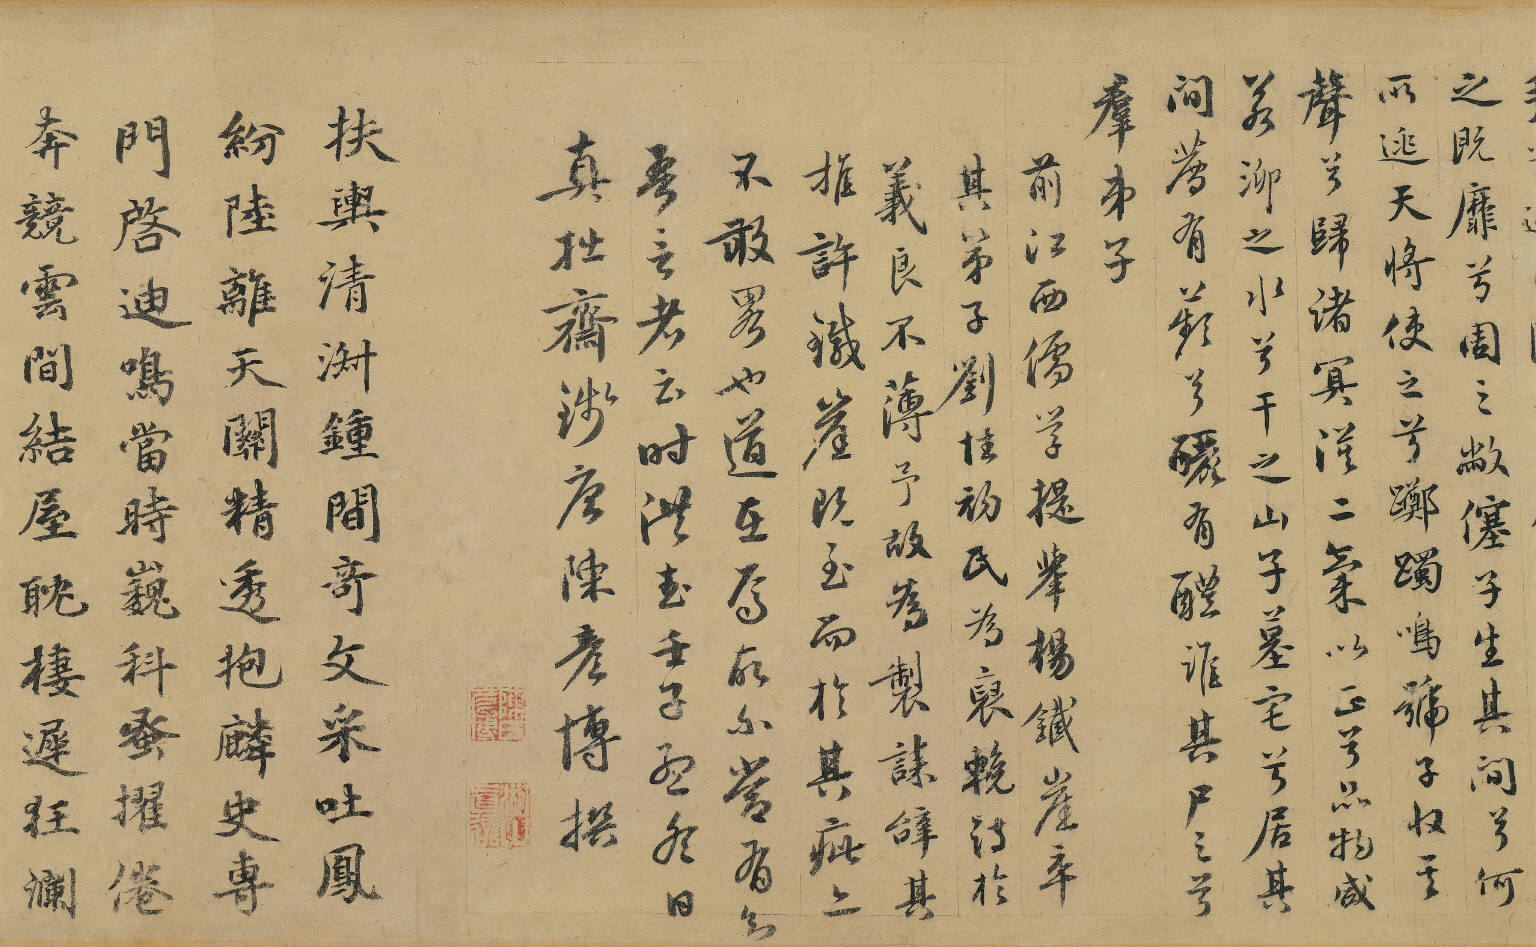 之既靡兮周之敝僿子生其間兮何
所逃天將使之兮躑躅鳴號子收其
聲兮歸諸冥漠二氣以正兮品物咸
若泖之水兮干之山子墓宅兮居其
間薦有蘋兮釃有醴誰其尸之兮
羣弟子
前江西儒學提舉楊鐵崖卒
其第子劉性初氏為裒輓詩於
義良不薄予故為製誄辭其
推許鐵崖既至而於其疵亦
不敢畧也道在焉故尓當有知
吾言者云时洪武壬子孟冬日
真拙齋錢唐陳彥博撰
扶輿清淑鍾間奇文采吐鳳
紛陸離天關精透抱麟史專
門啓迪鳴當時巍科蚤擢倦
奔競雲間結屋耽棲遲狂瀾